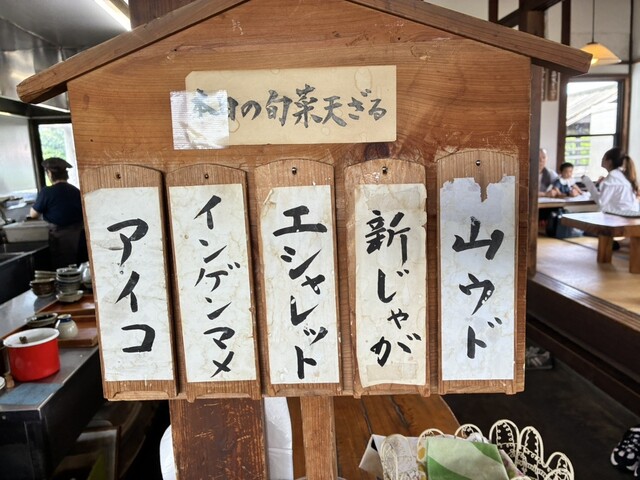 本日の旬菜天ざる
山ウド
新じゃが
エシャレット
インゲンマメ
アイコ